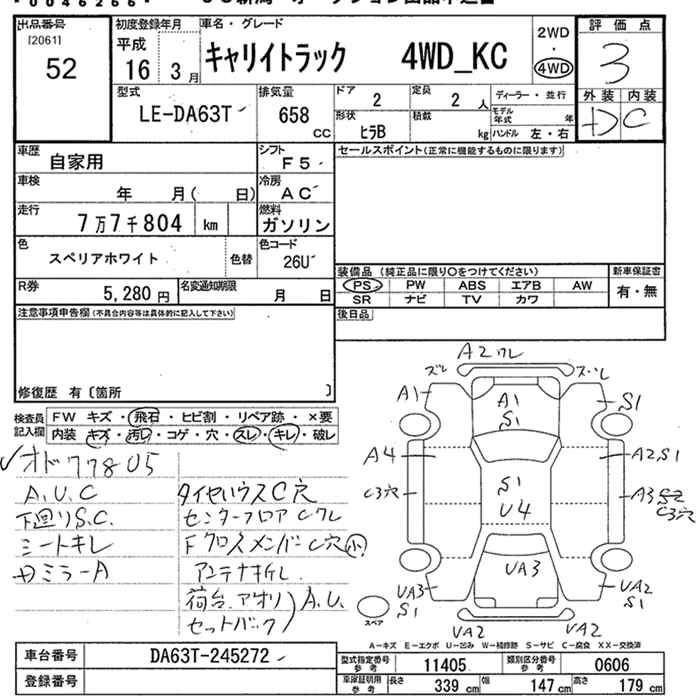 出品番号
[2061]
52
初度登録年月
平成
16年 3月
車名・グレード
キャリイトラック 4WD_KC
2WD
・
4WD
評価点
3
外装 内装
D C
型式
LE-DA63T
排気量
658
CC
ドア
2
定員
2 人
ディーラー・並行
モデル年式 年
形状
ヒラB
積載
kg
ハンドル 左・右
車歴
自家用
シフト
F5
車検
年 月( 日)
冷房
AC
走行
7万7千804 km
燃料
ガソリン
色
スペリアホワイト
色替
色コード
26U
R券
5,280円
名変通知期限
月 日
セールスポイント(正常に機能するものに限ります)
装備品(純正品に限り○をつけてください)
新車保証書
PS PW ABS エアB AW
SR ナビ TV カワ
有・無
後日品
注意事項申告欄(不具合内容等は具体的に記入して下さい)
修復歴 有〔箇所 〕
検査員
記入欄
FW キズ・飛石・ヒビ割・リペア跡・×要
内装 キズ・汚レ・コゲ・穴・スレ・キレ・破レ
オド77805
A.U.C
下回りS.C.
シートキレ
ミラーA
タイヤハウスC穴
センターフロアCワレ
Fクロスメンバー C穴 小
アンテナ折レ
荷台、アオリ
セットバック
A.U.
A2ワレ
ズレ
ズレ
A1
A1
S1
S1
A4
A2S1
C3穴
S1
U4
A3
S2
C3穴
UA3
UA3
S1
UA2
S1
UA2
UA2
スペア
A-キズ E-エクボ U-凹み W-補修跡 S-サビ C-腐食 XX-交換済
車台番号
DA63T-245272
登録番号
型式指定番号
参考
11405
類別区分番号
参考
0606
車庫証明用
参考
長さ
339 cm
幅
147 cm
高さ
179 cm